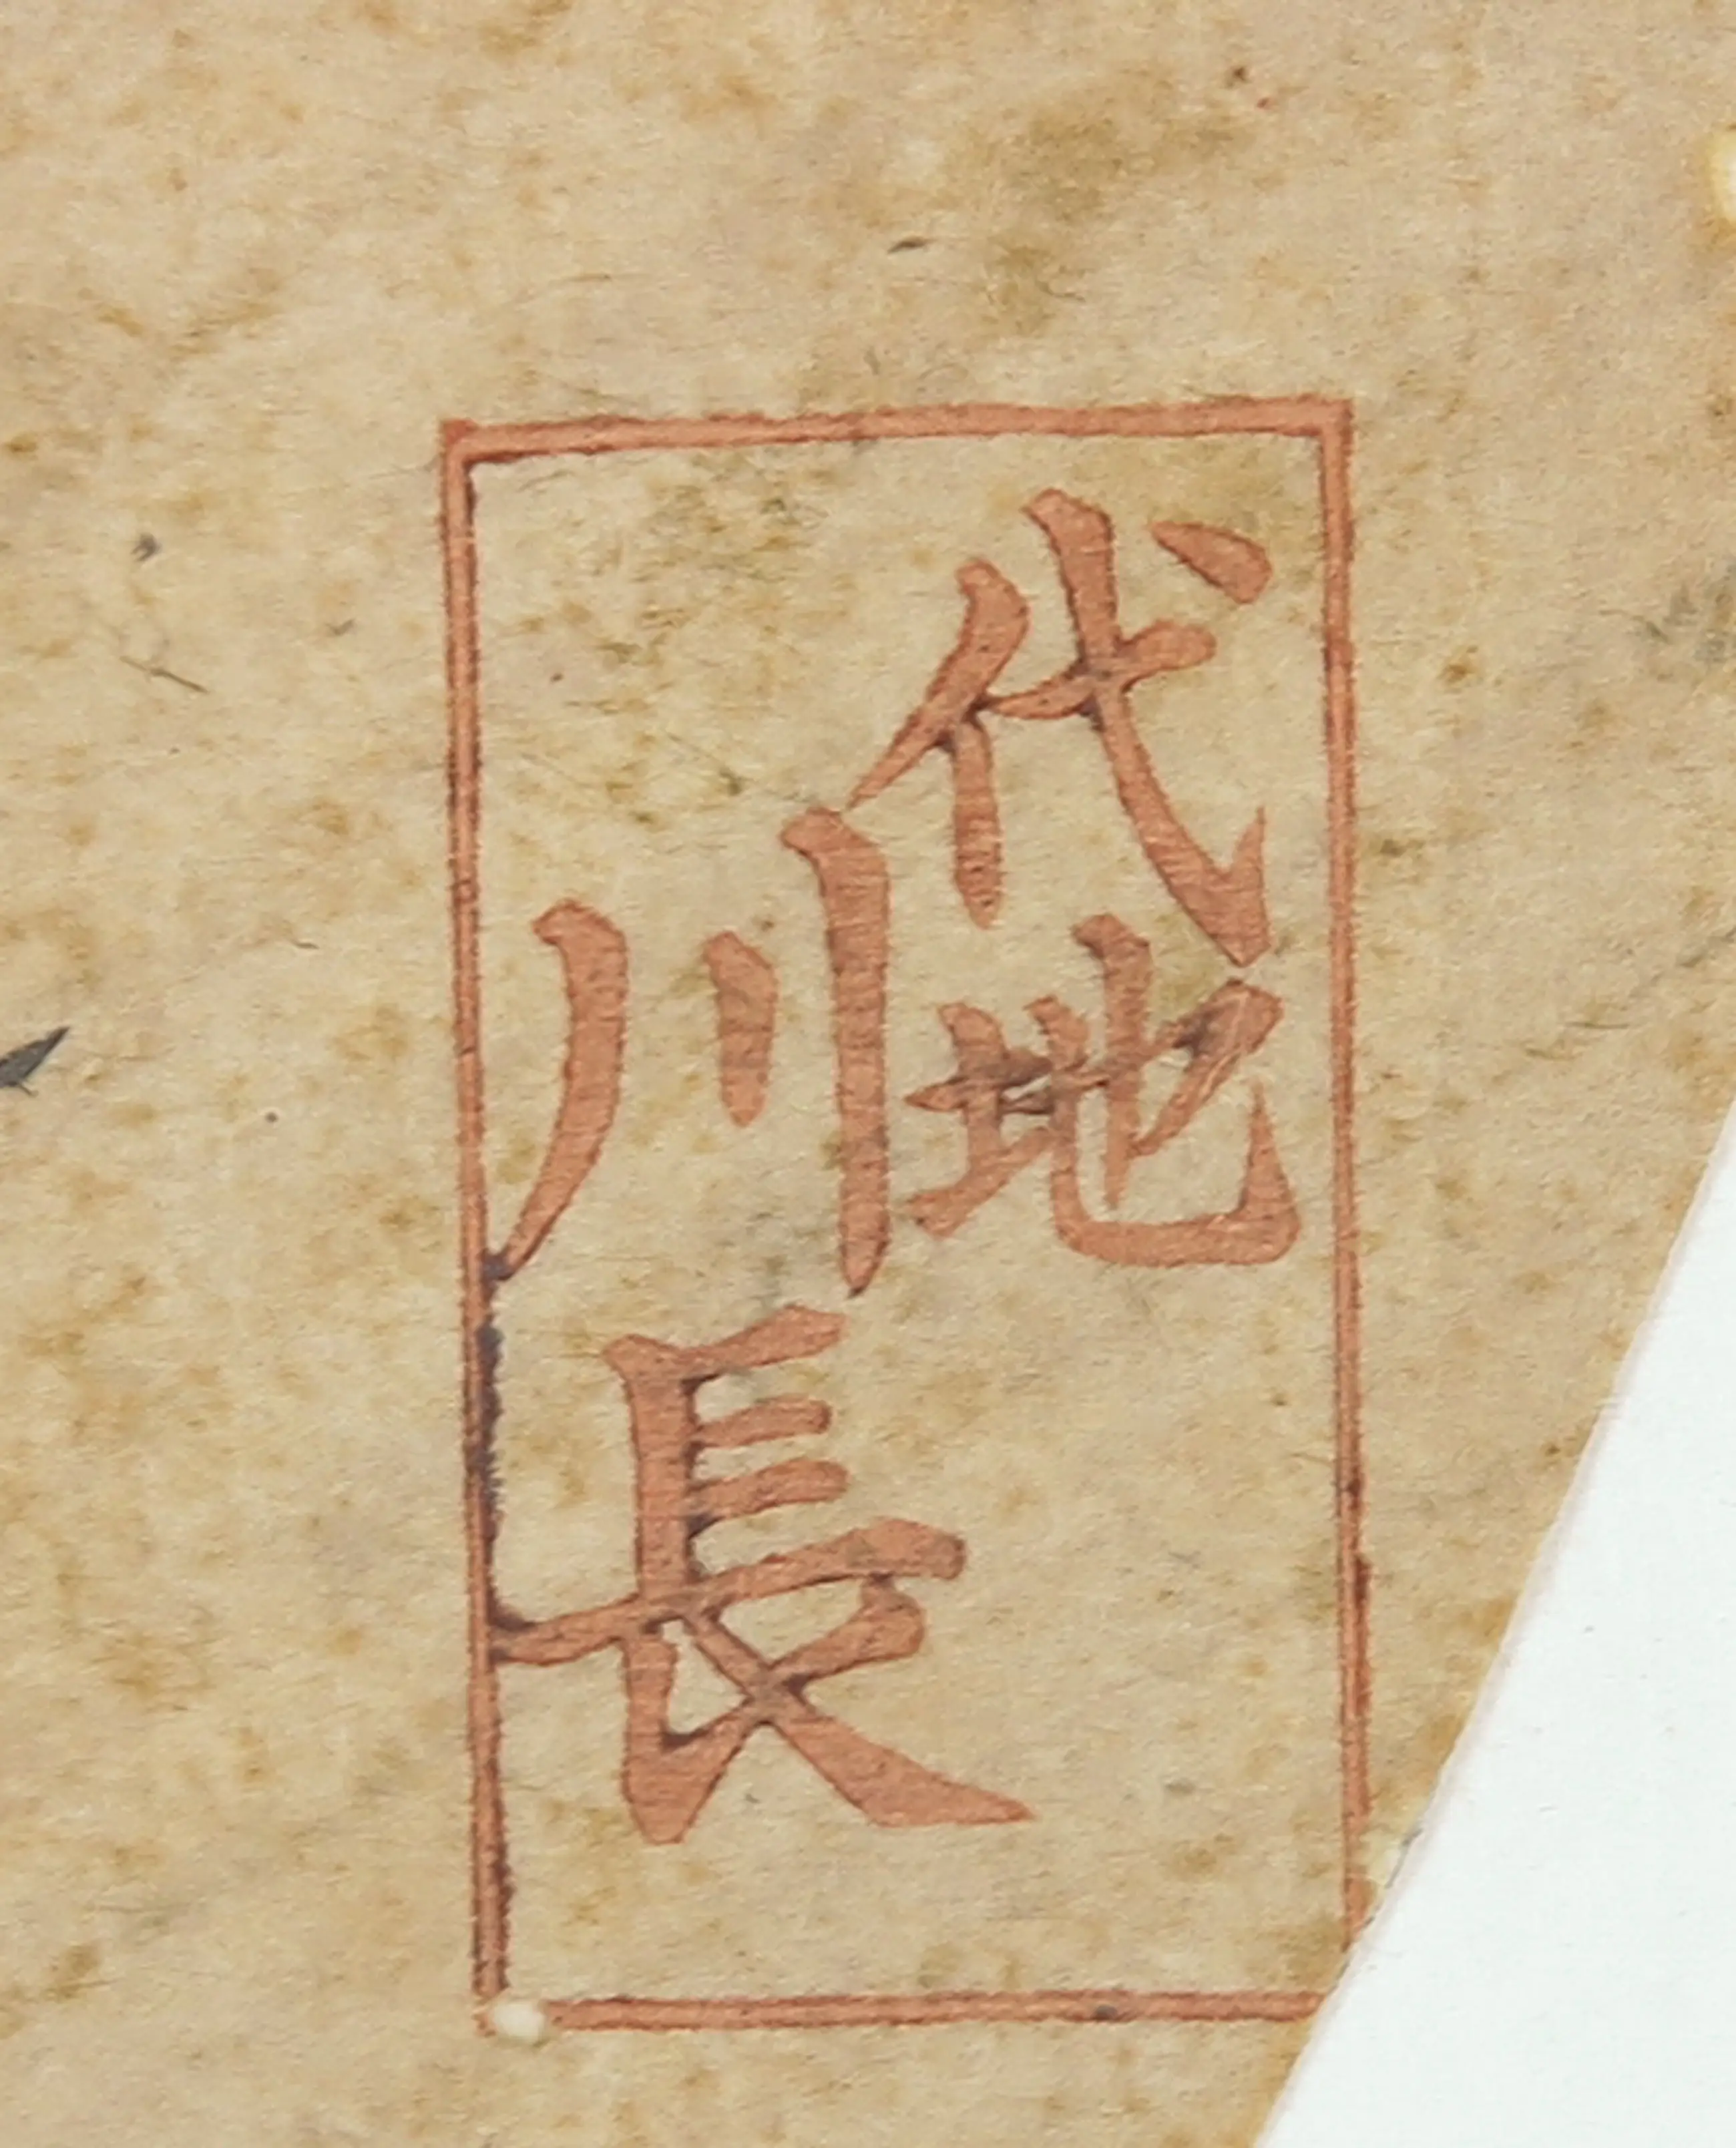 代地
川長